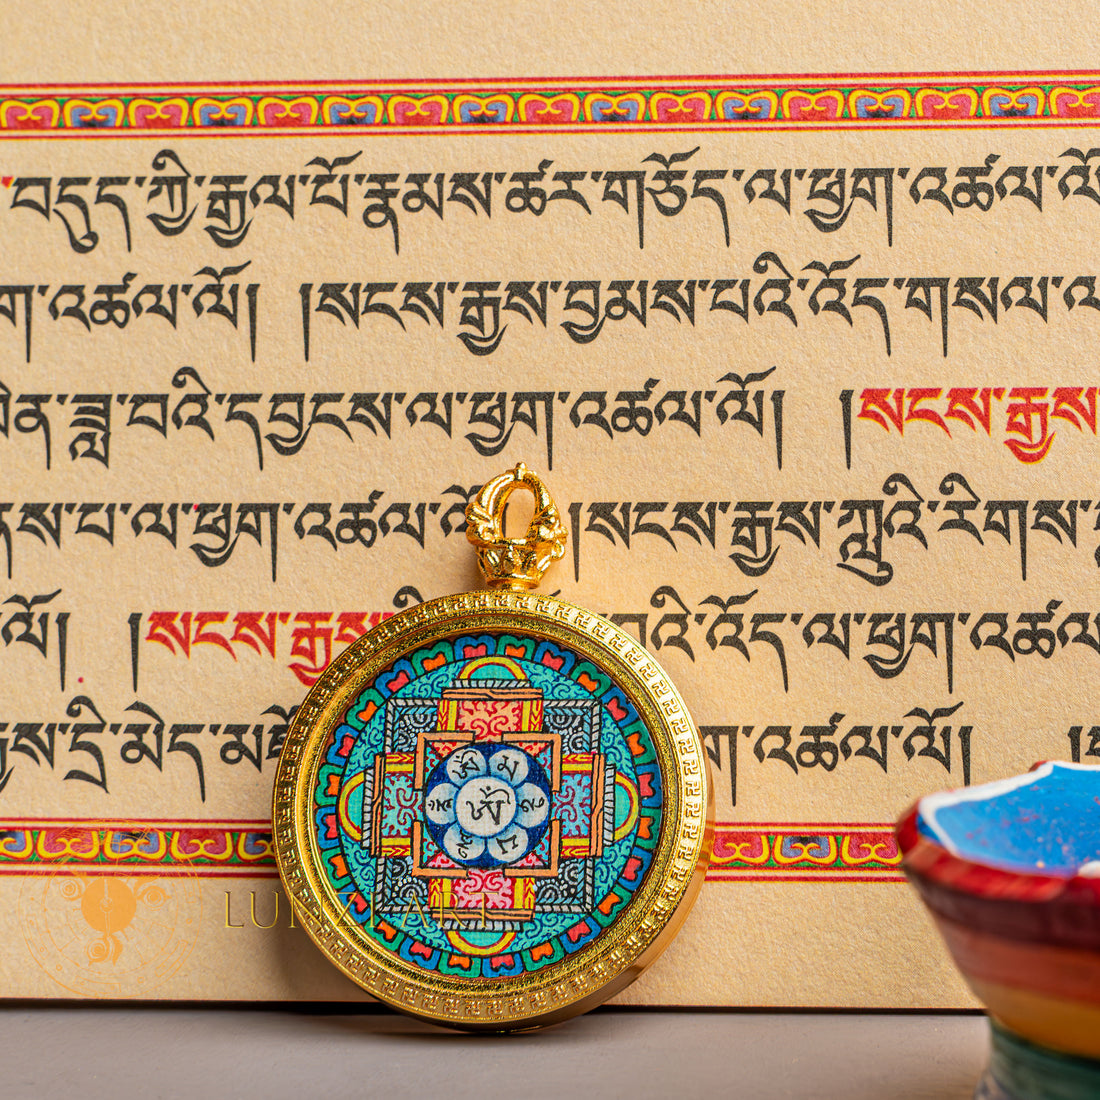 བདུད་ཀྱི་རྒྱལ་པོ་རྣམས་ཚར་གཅོད་ལ་ཕྱག་འཚལ་ལོ
འཚལ་ལོ། །སངས་རྒྱས་བྱམས་པའི་འོད་གསལ་ལ
ཟླ་བའི་དབྱངས་ལ་ཕྱག་འཚལ་ལོ། །སངས་རྒྱས་
པ་ལ་ཕྱག་འཚལ་ལོ། །སངས་རྒྱས་ཀླུའི་རིགས་
ལོ། །སངས་རྒྱས འི་འོད་ལ་ཕྱག་འཚལ
དྲི་མེད་ འཚལ་ལོ།